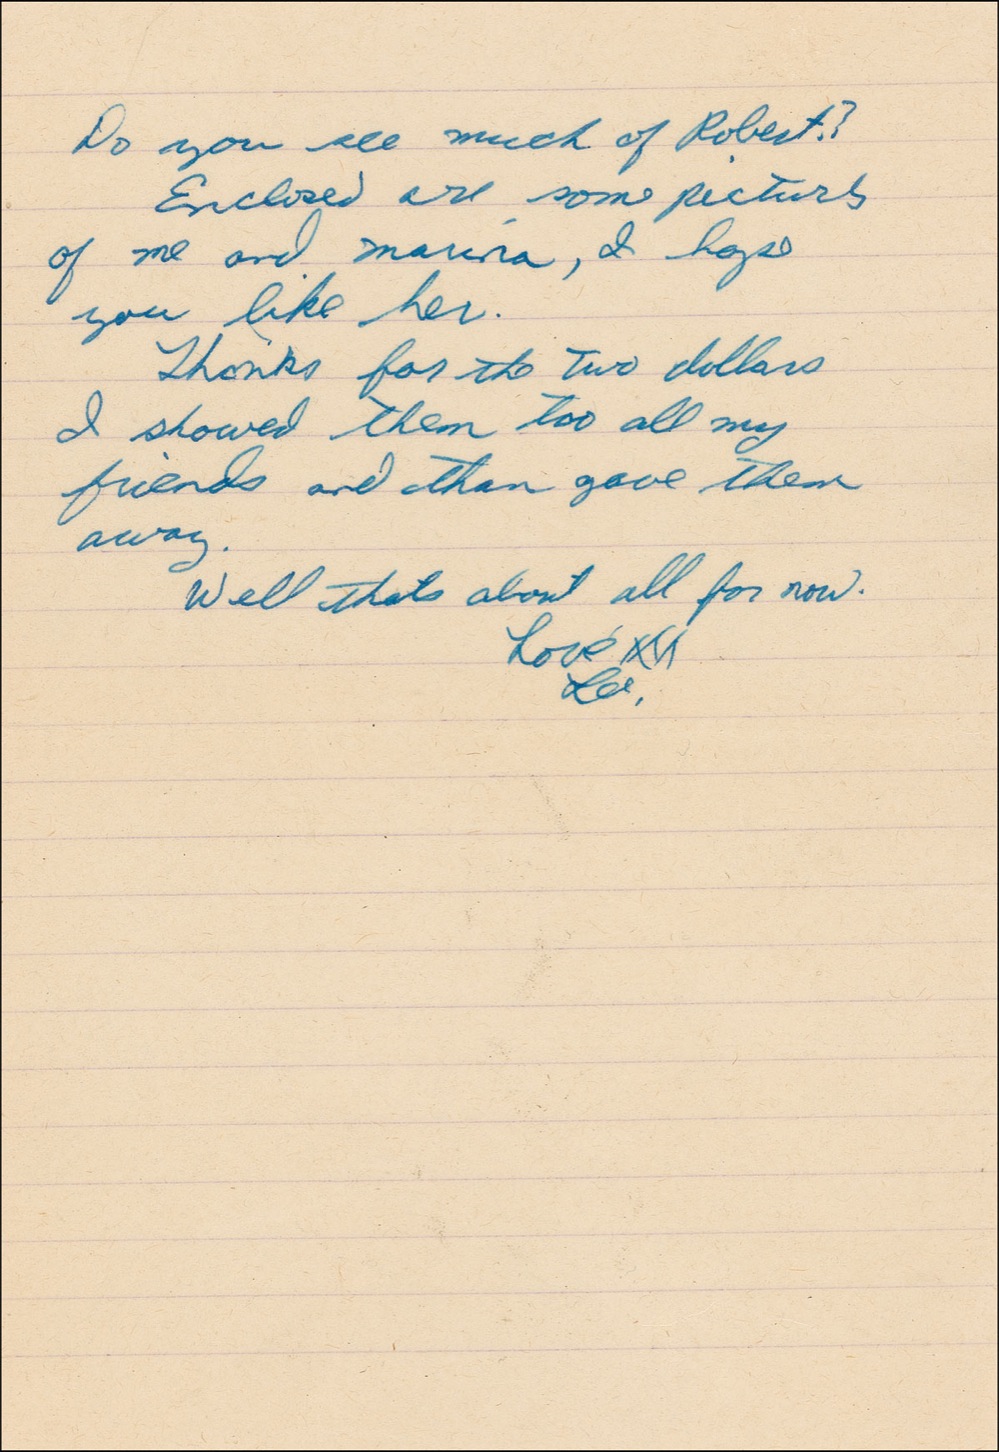 Do you see much of Robert?
Enclosed are some picturs
of me and marina, I hope
you like her.
Thanks for the two dollars
I showed them too all my
friends and than gave them
away.
Well thats about all for now.
Love XXX
Lee,